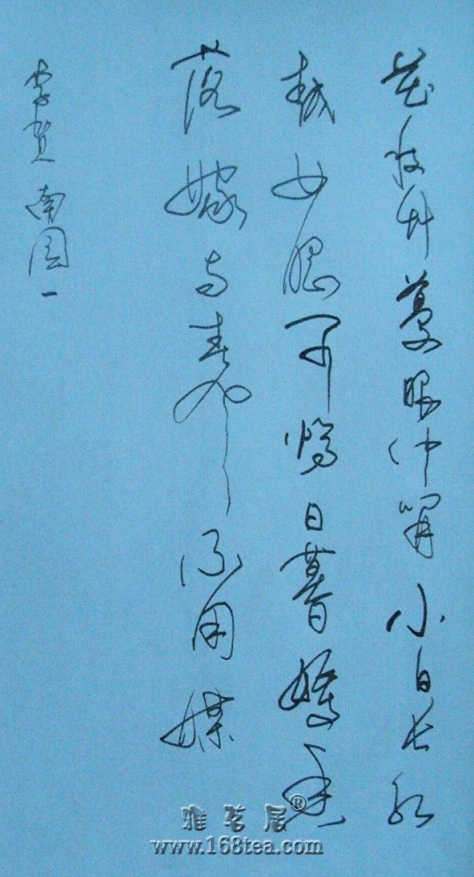 花枝草蔓眼中開小白长红
越女腮可怜日暮嫣香
落嫁与春风不用媒
李贺南园一
雅茗居®
www.168tea.com